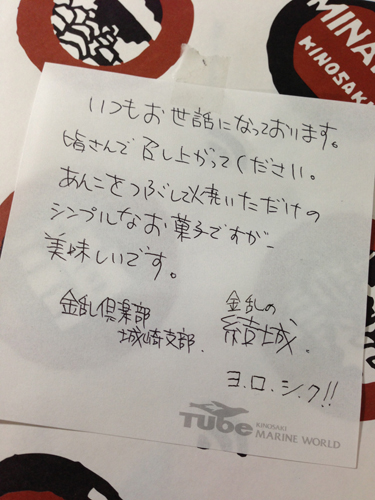 MINA
KINOSAKI
いつもお世話になっております。
皆さんで召し上がってください。
あんこをつぶして焼いただけの
シンプルなお菓子ですが
美味しいです。
金乱倶楽部
城崎支部.
金乱の
結城.
ヨ.ロ.シ.ク!!
Tube KINOSAKI MARINE WORLD